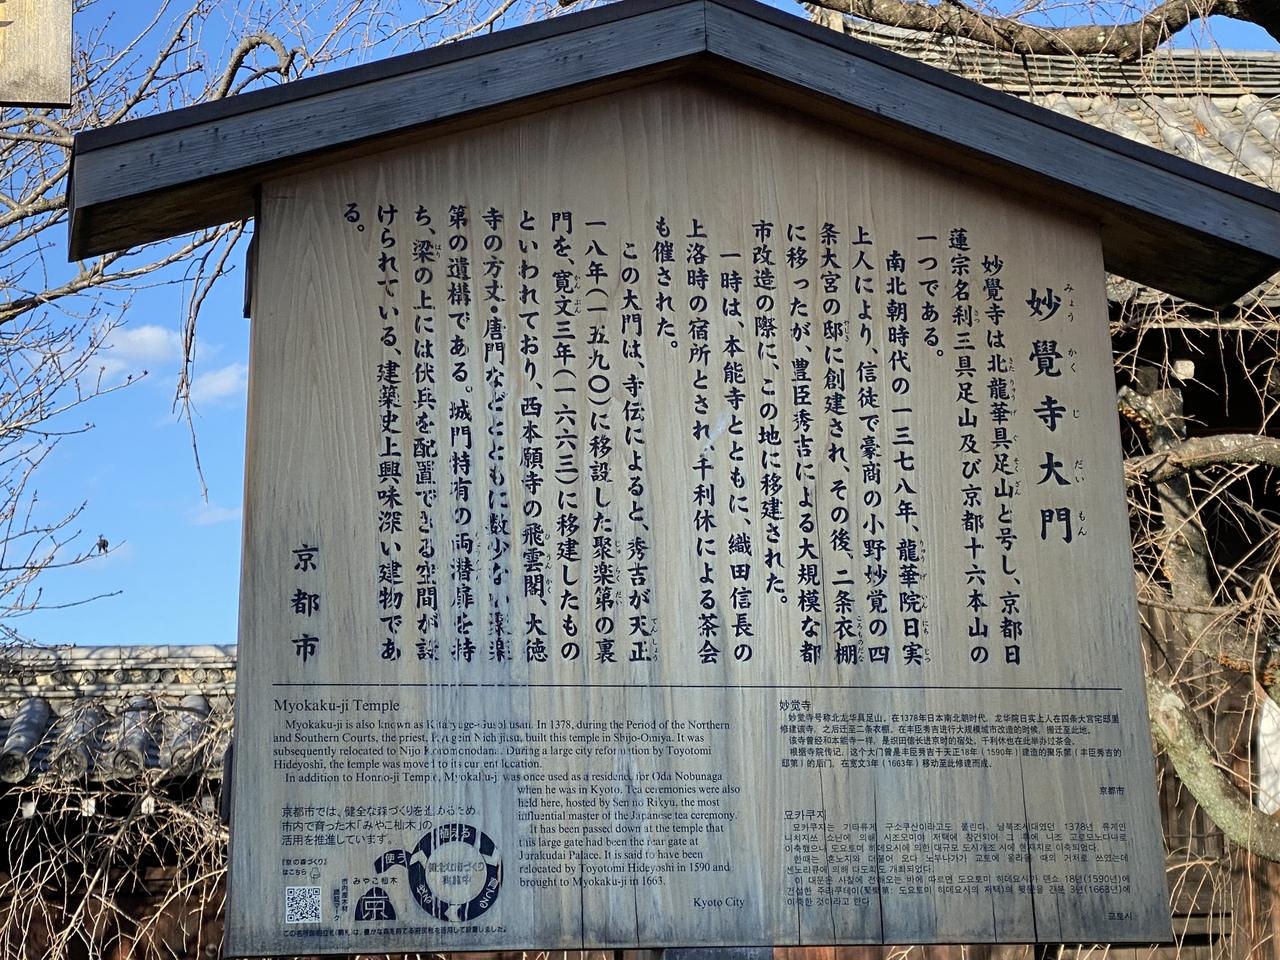 妙覺寺大門
妙覺寺は北龍華具足山と号し、京都日
蓮宗名刹三具足山及び京都十六本山の
一つである。
南北朝時代の一三七八年、龍華院日実
上人により、信徒で豪商の小野妙覚の四
条大宮の邸に創建され、その後、二条衣棚
に移ったが、豊臣秀吉による大規模な都
市改造の際に、この地に移建された。
一時は、本能寺とともに、織田信長の
上洛時の宿所とされ、千利休による茶会
も催された。
この大門は、寺伝によると、秀吉が天正
一八年(一五九〇)に移設した聚楽第の裏
門を、寛文三年(一六六三)に移建したもの
といわれており、西本願寺の飛雲閣、大徳
寺の方丈・唐門などとともに数少ない聚楽
第の遺構である。城門特有の両潜扉を持
ち、梁の上には伏兵を配置できる空間が設
けられている、建築史上興味深い建物であ
る。
京都市
Myokaku-ji Temple
Myokaku-ji is also known as In 1378, during the Period of the Northern
and Southern Courts, the priest, built this temple in Shijo-Omiya. It was
subsequently relocated to Nijo During a large city by Toyotomi
Hideyoshi, the temple was moved to its current location.
In addition to Honno-ji Temple, Myokaku-ji was once used as a residence for Oda Nobunaga
when he was in Kyoto. Tea ceremonies were also
held here, hosted by Sen no Rikyu, the most
influential master of the Japanese tea ceremony.
It has been passed down at the temple that
this large gate had been the rear gate at
Jurakudai Palace. It is said to have been
relocated by Toyotomi Hideyoshi in 1590 and
brought to Myokaku-ji in 1663.
Kyoto City
京都市では、健全な森づくりを進めるため、
市内で育った木「みやこ杣木」の
活用を推進しています。
「京の森づくり」
はこちら
市内産木材
認証マーク
みやこ杣木
京
使う
植える
育てる
この名所説明立札(駒札)は、豊かな森を育てる府民税を活用して設置しました。
妙觉寺
妙觉寺号称北龙华具足山。在1378年日本南北朝时代，龙华院日实上人在四条大宫宅邸里
修建该寺，之后迁至二条衣棚。在丰臣秀吉进行大规模城市改造的时候，搬迁至此地。
该寺曾经和本能寺一样，是织田信长进京时的宿处，千利休也在此举办过茶会。
根据寺院传记，这个大门曾是丰臣秀吉于天正18年（1590年）建造的聚乐第（丰臣秀吉的
邸第）的后门，在宽文3年（1663年）移动至此修建而成。
京都市
묘카쿠지
묘카쿠지는 기타류게 구소쿠산이라고도 불린다. 남북조시대였던 1378년 류게인
니치지쓰 쇼닌에 의해 시조오미야 저택에 창건되어 그 후에 니조 고로모노다나로
이축했으나 도요토미 히데요시에 의한 대규모 도시개조 시에 현재지로 이축되었다.
한때는 혼노지와 더불어 오다 노부나가가 교토에 올라올 때의 거처로 쓰였는데
센노리큐에 의해 다도회도 개최되었다.
이 대문은 사찰에 전해오는 바에 따르면 도요토미 히데요시가 덴쇼 18년(1590년)에
건설한 주라쿠테이(聚樂第: 도요토미 히데요시의 저택)의 뒷문을 간분 3년(1663년)에
이축한 것이라고 한다.
교토시